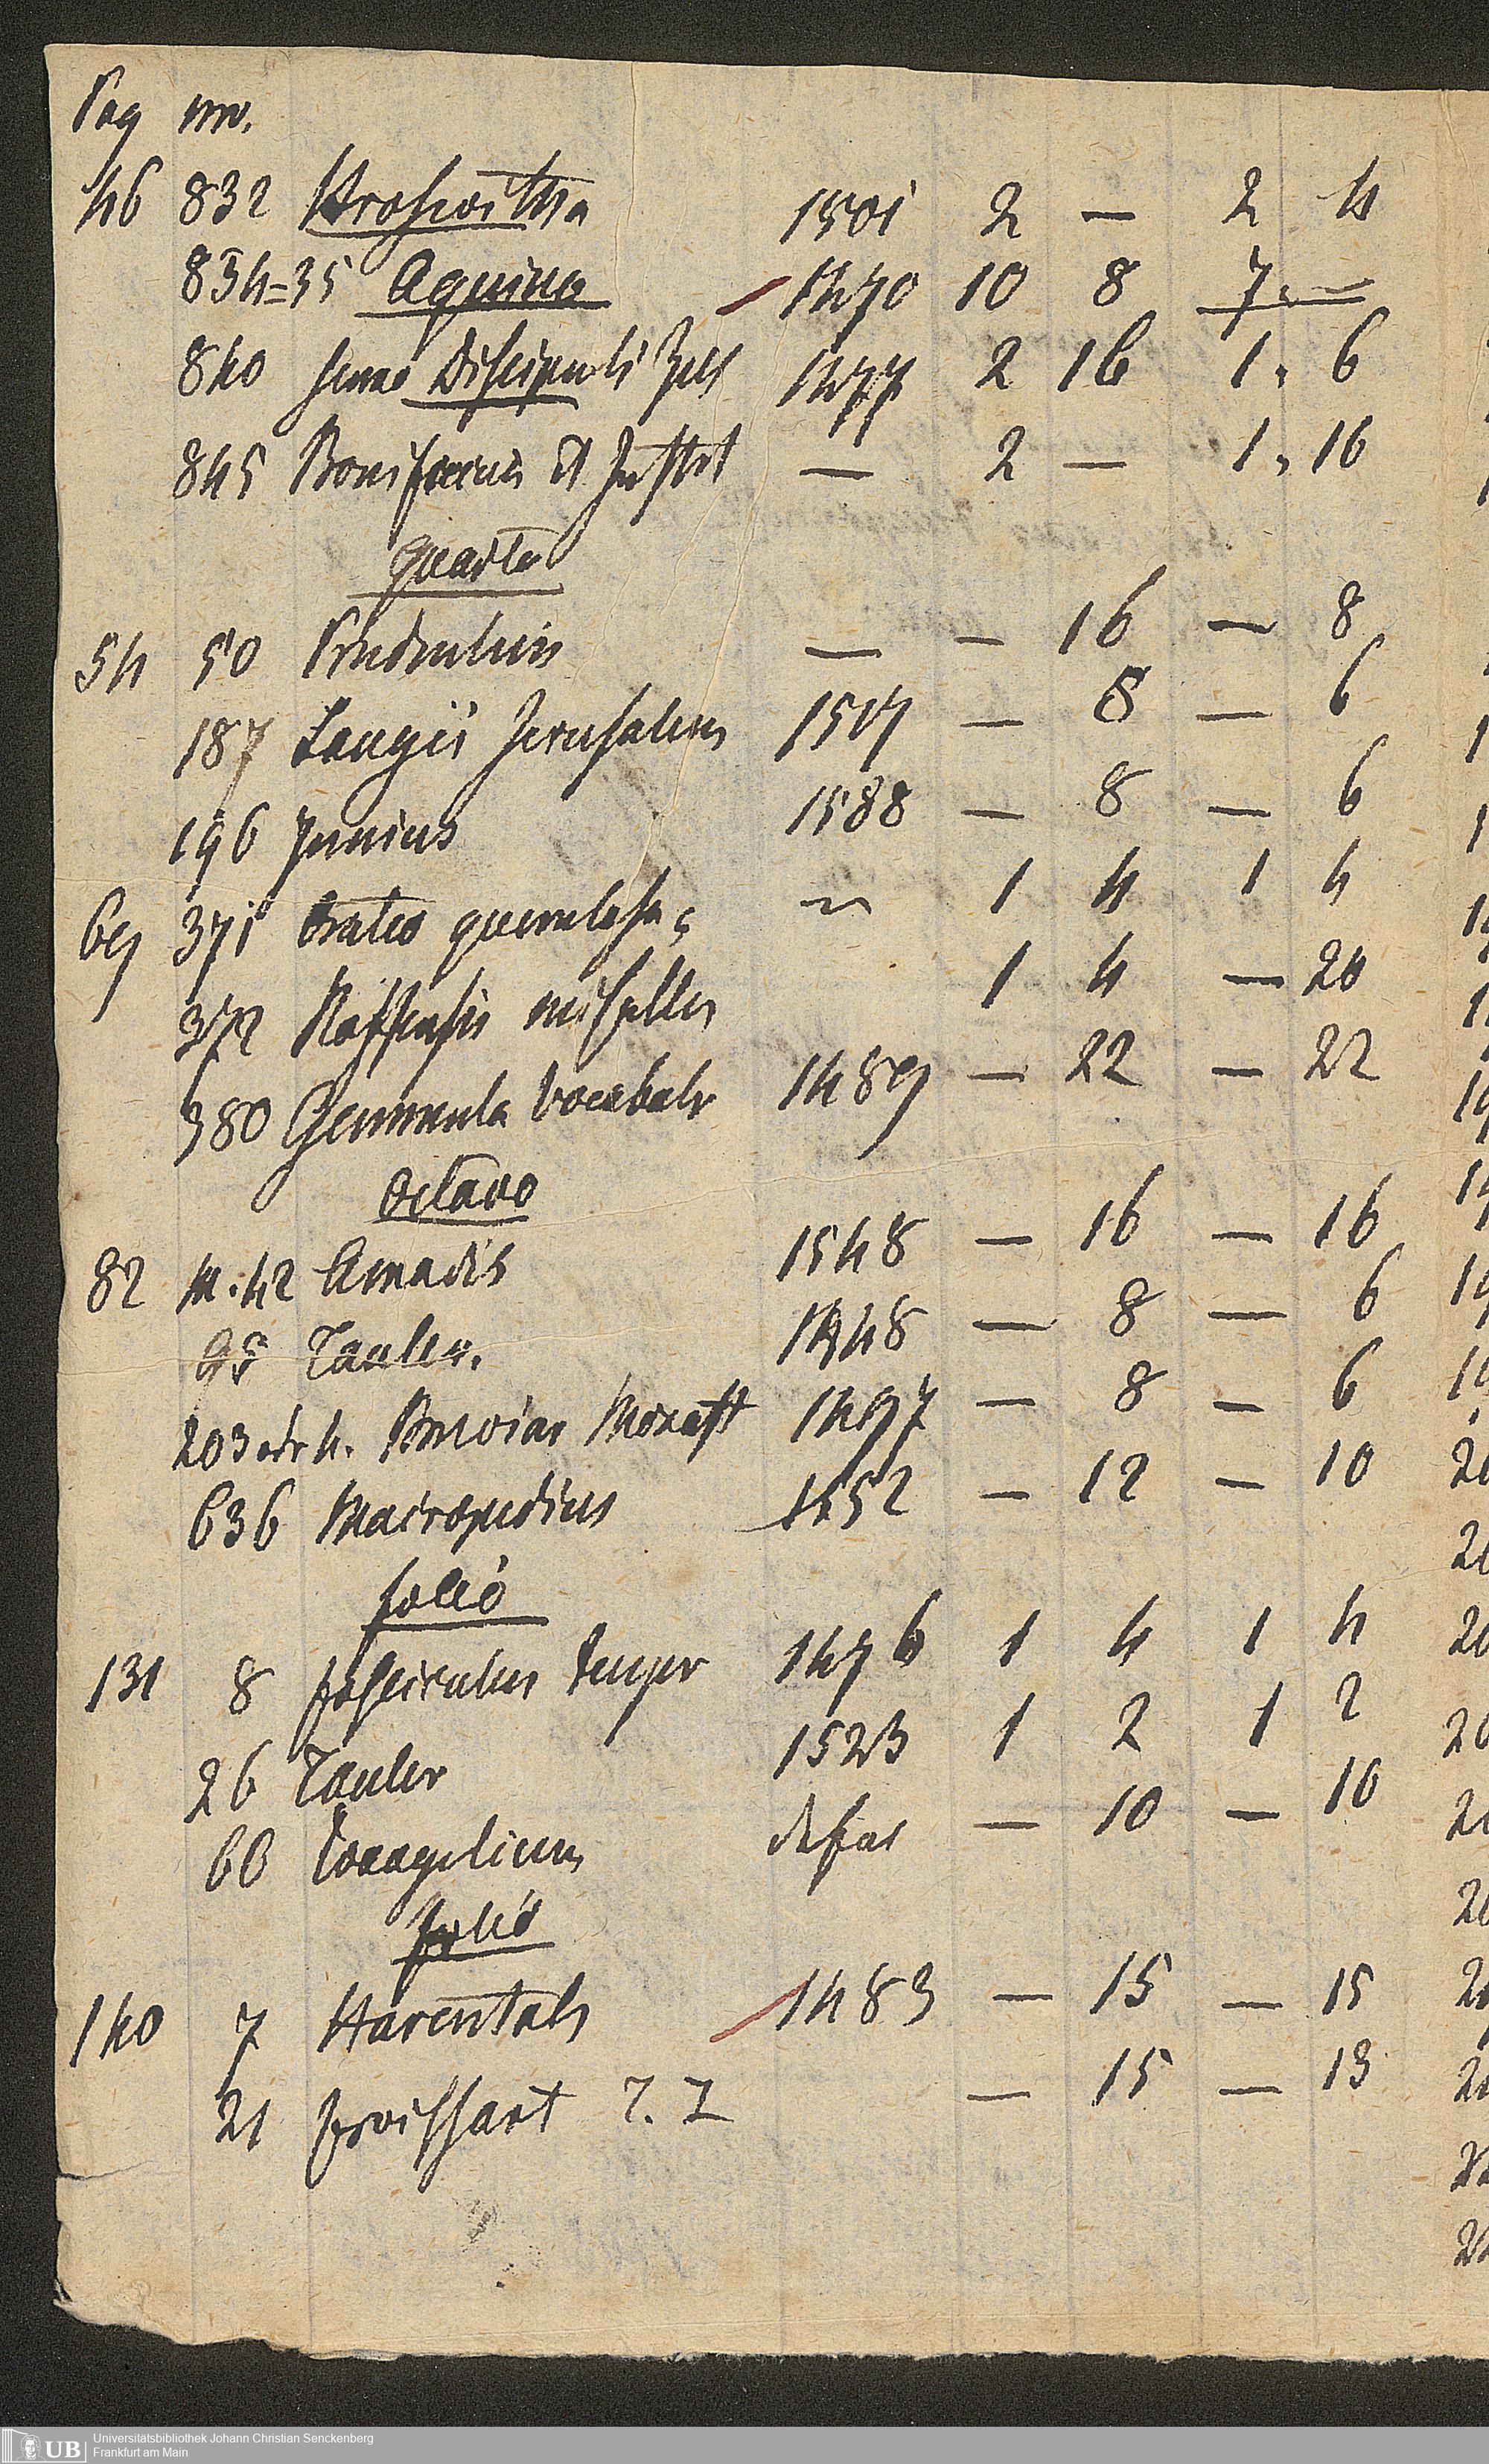 Pag nro.
46 832 Hroswitha 1501 2 — 2 4
834=35 Aquino 1470 10 8 7. —
840 Discipuli 1477 2 16 1. 6
845 Bonifacius et — 2 — 1, 16
quarto
54 50 Prudentius — — 16 — 8
187 Langii Jerusalem — 8 — 6
196 Junius 1588 — 8 — 6
69 371 Oratio querulosa 1 4 1 4
372 Roffensis 1 4 — 20
380 Gemmula vocabulr 1489 — 22 — 22
Octavo
82 42 Amadis 1548 — 16 — 16
95 Tauler. — 8 — 6
203 Breviar 1497 — 8 — 6
636 Macropedius 1552 — 12 — 10
folio
131 8 fasciculus tempor 1476 1 4 1 4
26 Tauler 1523 1 2 1 2
66 Evangelium — 10 — 10
folio
140 7 Harentals 1483 — 15 — 15
21 froissart T. I — 15 — 13
Universitätsbibliothek Johann Christian Senckenberg
Frankfurt am Main
UB